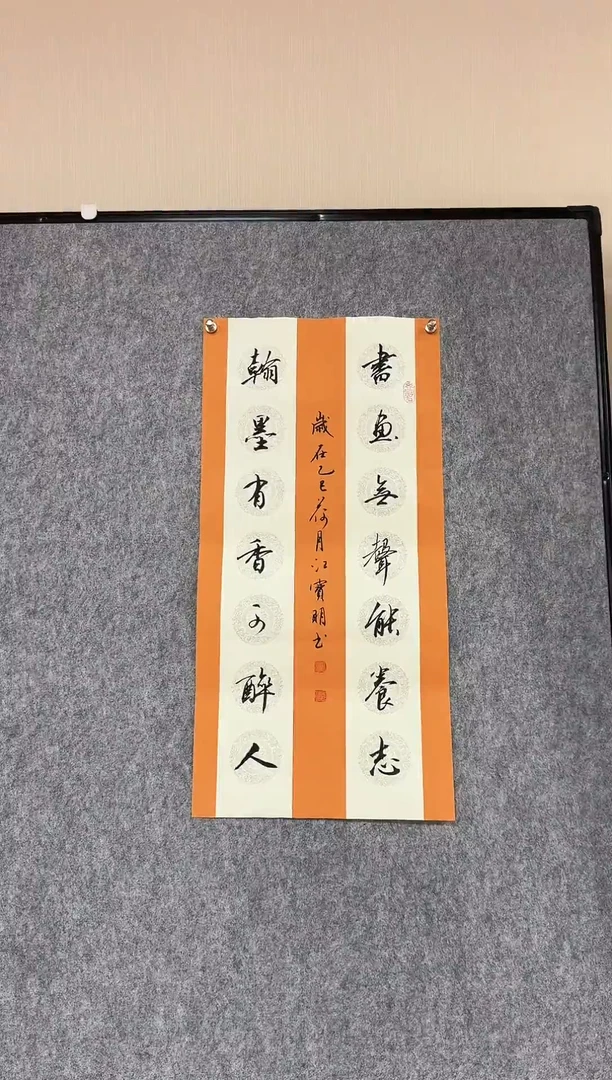 書画無聲能養志
歲在乙巳荷月江寶明书
翰墨有香可醉人